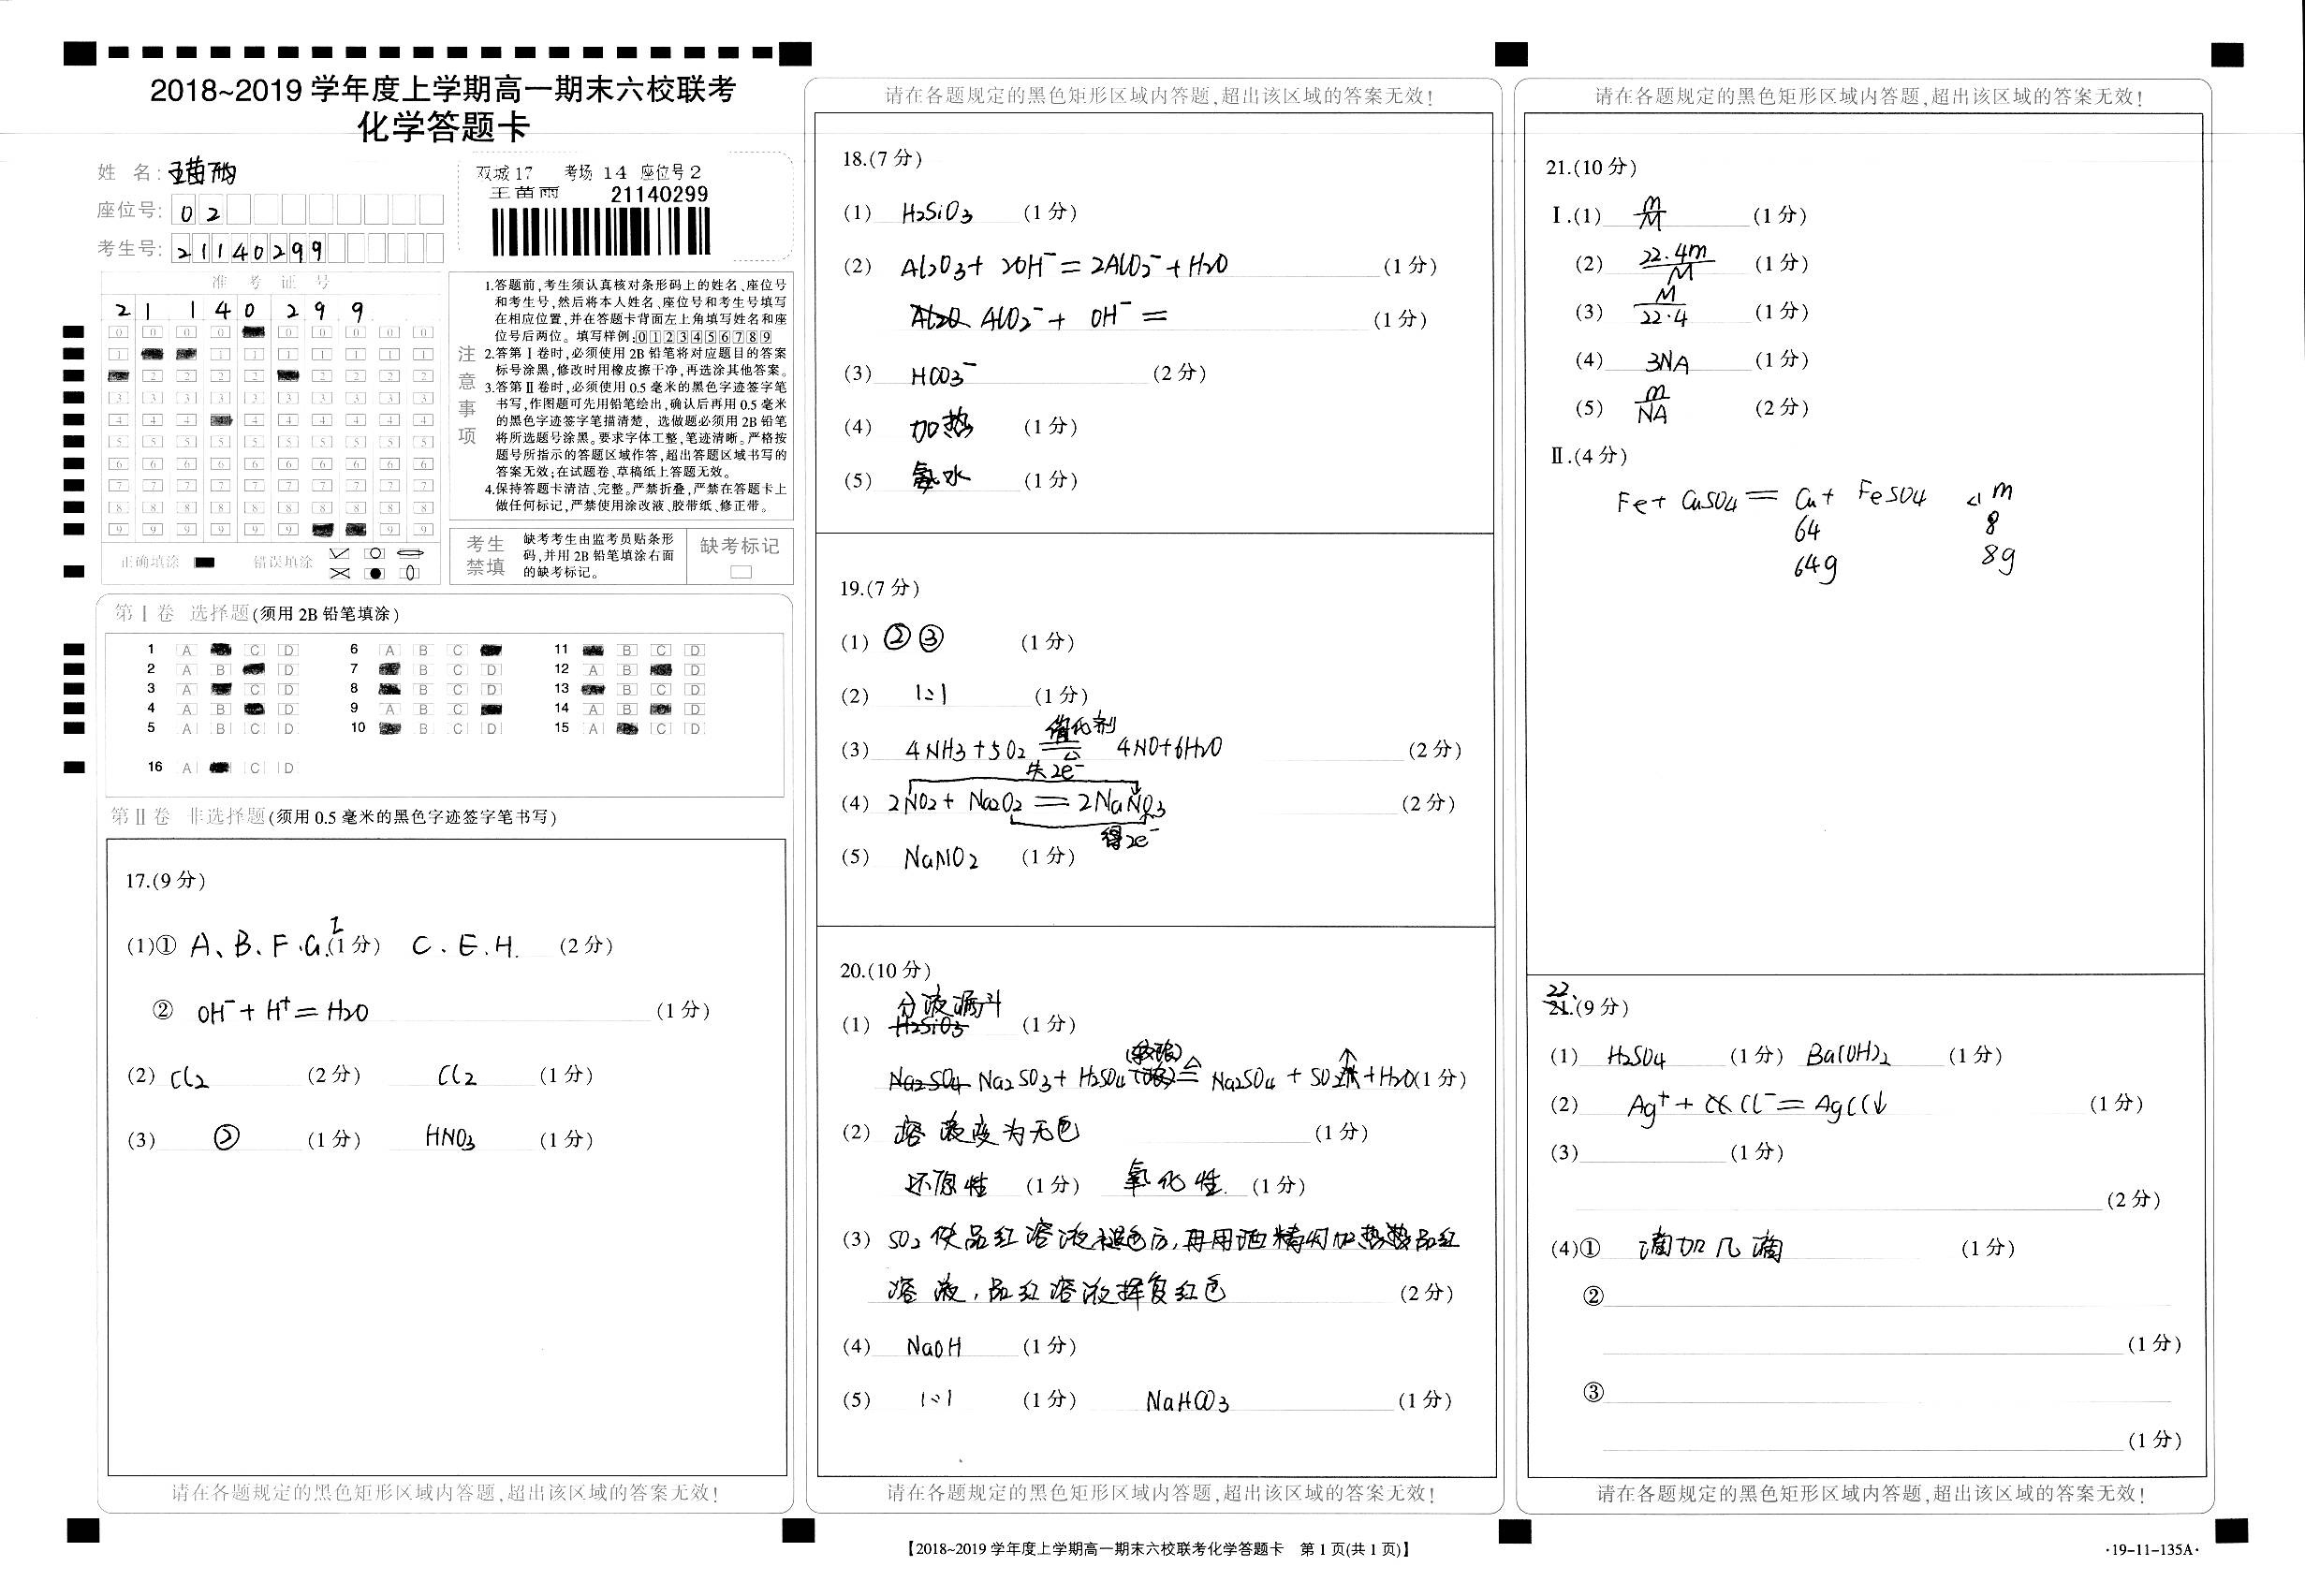 2018~2019 学年度上学期高一期末六校联考
化学答题卡
姓 名: 王苗雨
座位号: 02
考生号: 21140299
双城17 考场 14 座位号 2
王苗雨 21140299
准 考 证 号
2 1 1 4 0 2 9 9
0 0 0 0 0 0 0 0 0
1 1 1 1 1 1 1 1
2 2 2 2 2 2 2 2
3 3 3 3 3 3 3 3 3 3
4 4 4 4 4 4 4 4 4
5 5 5 5 5 5 5 5 5 5
6 6 6 6 6 6 6 6 6 6
7 7 7 7 7 7 7 7 7 7
8 8 8 8 8 8 8 8 8 8
9 9 9 9 9 9 9 9
正确填涂 错误填涂
注意事项
1.答题前,考生须认真核对条形码上的姓名、座位号
和考生号,然后将本人姓名、座位号和考生号填写
在相应位置,并在答题卡背面左上角填写姓名和座
位号后两位。填写样例:0123456789
2.答第Ⅰ卷时,必须使用2B铅笔将对应题目的答案
标号涂黑,修改时用橡皮擦干净,再选涂其他答案。
3.答第Ⅱ卷时,必须使用0.5毫米的黑色字迹签字笔
书写,作图题可先用铅笔绘出,确认后再用0.5毫米
的黑色字迹签字笔描清楚, 选做题必须用2B铅笔
将所选题号涂黑。要求字体工整,笔迹清晰。严格按
题号所指示的答题区域作答,超出答题区域书写的
答案无效;在试题卷、草稿纸上答题无效。
4.保持答题卡清洁、完整。严禁折叠,严禁在答题卡上
做任何标记,严禁使用涂改液、胶带纸、修正带。
考生禁填
缺考考生由监考员贴条形
码,并用2B铅笔填涂右面
的缺考标记。
缺考标记
第Ⅰ卷 选择题(须用2B铅笔填涂)
1 A C D 6 A B C 11 B C D
2 A B D 7 B C D 12 A B D
3 A C D 8 B C D 13 B C D
4 A B D 9 A B C 14 A B D
5 A B C D 10 B C D 15 A C D
16 A C D
第Ⅱ卷 非选择题(须用0.5毫米的黑色字迹签字笔书写)
17.(9分)
(1)① A、B、F.G.I(1分) C.E.H. (2分)
② OH⁻+H⁺=H₂O (1分)
(2) Cl₂ (2分) Cl₂ (1分)
(3) ② (1分) HNO₃ (1分)
请在各题规定的黑色矩形区域内答题,超出该区域的答案无效!
请在各题规定的黑色矩形区域内答题,超出该区域的答案无效!
18.(7分)
(1) H₂SiO₃ (1分)
(2) Al₂O₃+2OH⁻=2AlO₂⁻+H₂O (1分)
Al₂O AlO₂⁻+OH⁻= (1分)
(3) HCO₃⁻ (2分)
(4) 加热 (1分)
(5) 氨水 (1分)
19.(7分)
(1) ②③ (1分)
(2) 1:1 (1分)
催化剂
(3) 4NH₃+5O₂ = 4NO+6H₂O (2分)
△
失2e⁻
(4) 2NO₂+Na₂O₂=2NaNO₃ (2分)
得2e⁻
(5) NaNO₂ (1分)
20.(10分)
分液漏斗
(1) H₂SiO₃ (1分)
Na₂SO₄ Na₂SO₃+H₂SO₄ (浓) △= Na₂SO₄+SO₂↑+H₂O(1分)
(2) 溶液变为无色 (1分)
还原性 (1分) 氧化性. (1分)
(3) SO₂使品红溶液褪色后,再用酒精灯加热品红
溶液,品红溶液挥复红色 (2分)
(4) NaOH (1分)
(5) 1:1 (1分) NaHCO₃ (1分)
请在各题规定的黑色矩形区域内答题,超出该区域的答案无效!
请在各题规定的黑色矩形区域内答题,超出该区域的答案无效!
21.(10分)
Ⅰ.(1) m/M (1分)
(2) 22.4m/M (1分)
(3) M/22.4 (1分)
(4) 3NA (1分)
(5) m/NA (2分)
Ⅱ.(4分)
Fe+CuSO₄=Cu+FeSO₄ △m
64 8
64g 8g
22.
21.(9分)
(1) H₂SO₄ (1分) Ba(OH)₂ (1分)
(2) Ag⁺+Cl⁻=AgCl↓ (1分)
(3) (1分)
(2分)
(4)① 滴加几滴 (1分)
②
(1分)
③
(1分)
请在各题规定的黑色矩形区域内答题,超出该区域的答案无效!
【2018~2019学年度上学期高一期末六校联考化学答题卡 第1页(共1页)】
·19-11-135A·